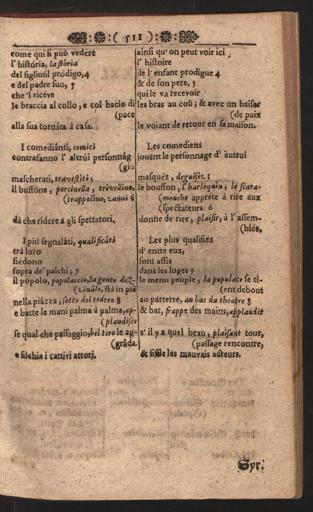 :( 511 ):
come qui si può vedere
l'história, la stória
del figliuól pródigo, 4
e del padre suo, 5
che 'l ricéve
le braccia al collo, e col bacio di
(pace
alla sua tornáta à casa.
I comediánti, comici
contrafanno l'altrúi personnág
(gio
mascherati, travestiti;
il buffóne, porcinella, trivellino,
(trappolino, zanni 6
dà che ridere a gli spettatori.
I più segnaláti, qualificáti
trà loro
siédono
sopra de' palchi, 7
il popolo, popolaccio, la gente dózzinále, stà in piè
nella piazza, sotto del teátro 8
e batte le mani palma à palma, ap-
(plaudisce
se qual che passággio, bel tiro le ag-
(gráda.
e fischia i cattivi attori.
ainsi qu'on peut voir ici
l'histoire
de l'enfant prodigue 4
& de son pere, 5
qui le va recevoir
les bras au cou; & avec un baiser
(de paix
le voiant de retour en sa maison.
Les comediens
jouënt le personnage d'autrui
masquéz, deguisez;
le bouffon, l'harlequin, le scara-
(mouche apprete à rire aux
(spectateurs. 6
donne de rire, plaisir, à l'assem-
(blée.
Les plus qualifiez
d'entre eux,
sont assis
dans les loges 7
le menu peuple, la populace se ti-
(ent debout
au parterre, au bas du theatre 8
& bat, frappe des mains, applaudit
s'il y a quel beau, plaisant tour,
(passage rencontre,
& siffle les mauvais acteurs.
Spr.